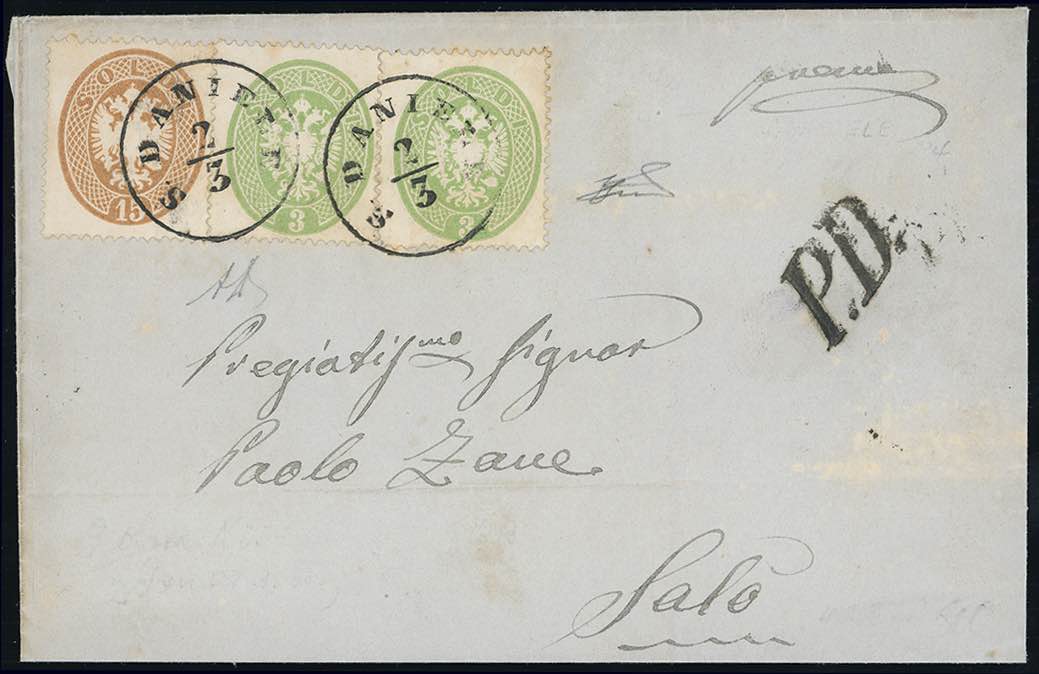 SOLDI 15
SOLDI 3
SOLDI 3
S. DANIELE
2/3
S. DANIELE
2/3
P.D.
All
Pregiatis.mo Signor
Paolo Zane
Salò